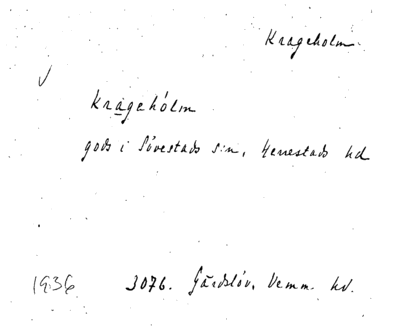 Krageholm.
Kragehólm
gods i Sövestads s:n, Herrestads hd
1936 3076. Gärdslöv, Vemm. hd.